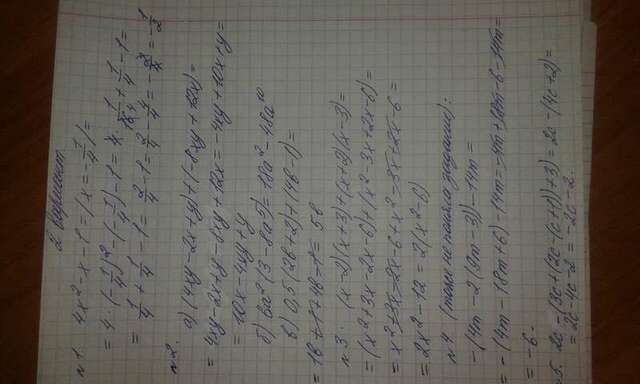 2 вариант
№1. 4x² - x - 1 = (x = -1/4) =
= 4·(-1/4)² - (-1/4) - 1 = 4·1/16 + 1/4 - 1 =
= 1/4 + 1/4 - 1 = 2/4 - 4/4 = -2/4 = -1/2
№2.
а) (4xy - 2x + y) + (-8xy + 12x) =
= 4xy - 2x + y - 8xy + 12x = -4xy + 10x + y =
= 10x - 4xy + y
б) 6a²(3 - 8a⁵) = 18a² - 48a¹⁰
в) 0,5(2b + 2) + (4b - 1) =
= 1b + 1 + 4b - 1 = 5b
№3. (x - 2)(x + 3) + (x + 2)(x - 3) =
= (x² + 3x - 2x - 6) + (x² - 3x + 2x - 6) =
= x² + 3x - 2x - 6 + x² - 3x + 2x - 6 =
= 2x² - 12 = 2(x² - 6)
№4 не поняла задание):
-(4m - 2(9m - 3)) - 14m =
= -(4m - 18m + 6) - 14m = -4m + 18m - 6 - 14m =
= -6.
5. 2c - (3c + (2c - (c + 1)) + 3) = 2c - (4c + 2) =
= 2c - 4c - 2 = -2c - 2.